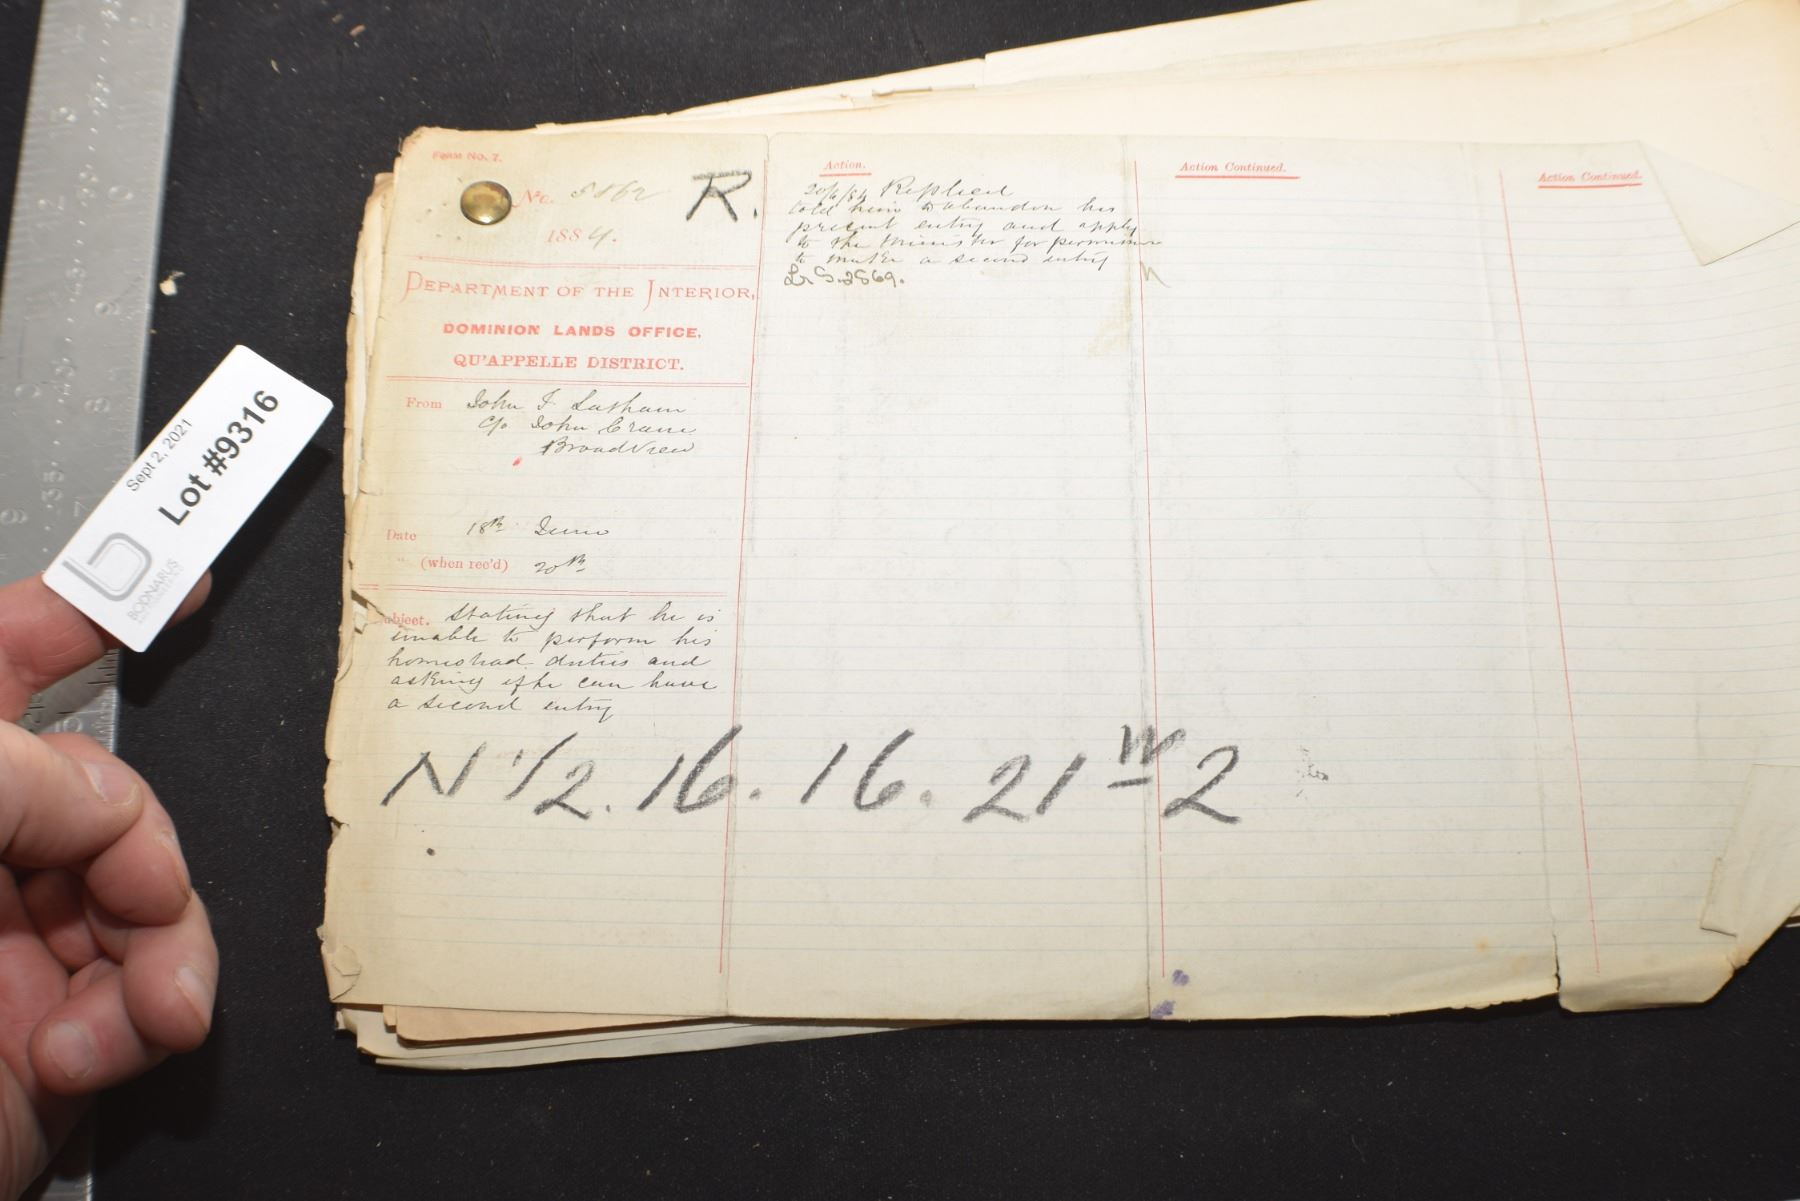 Form No. 7.
No. 5862 R.
1884.
DEPARTMENT OF THE INTERIOR,
DOMINION LANDS OFFICE,
QU'APPELLE DISTRICT.
From John F Latham
c/o John Crane
Broadview
Date 18th June
" (when rec'd) 20th
ubject. Stating that he is
unable to perform his
homestead duties and
asking if he can have
a second entry
Action.
20/6/84 Replied
told him to abandon his
present entry and apply
to the Minister for permission
to make a second entry
2569.
Action Continued.
Action Continued.
N 1/2. 16. 16. 21 W 2
Sept 2, 2021
Lot #9316
BODNARUS
AUCTIONEERING